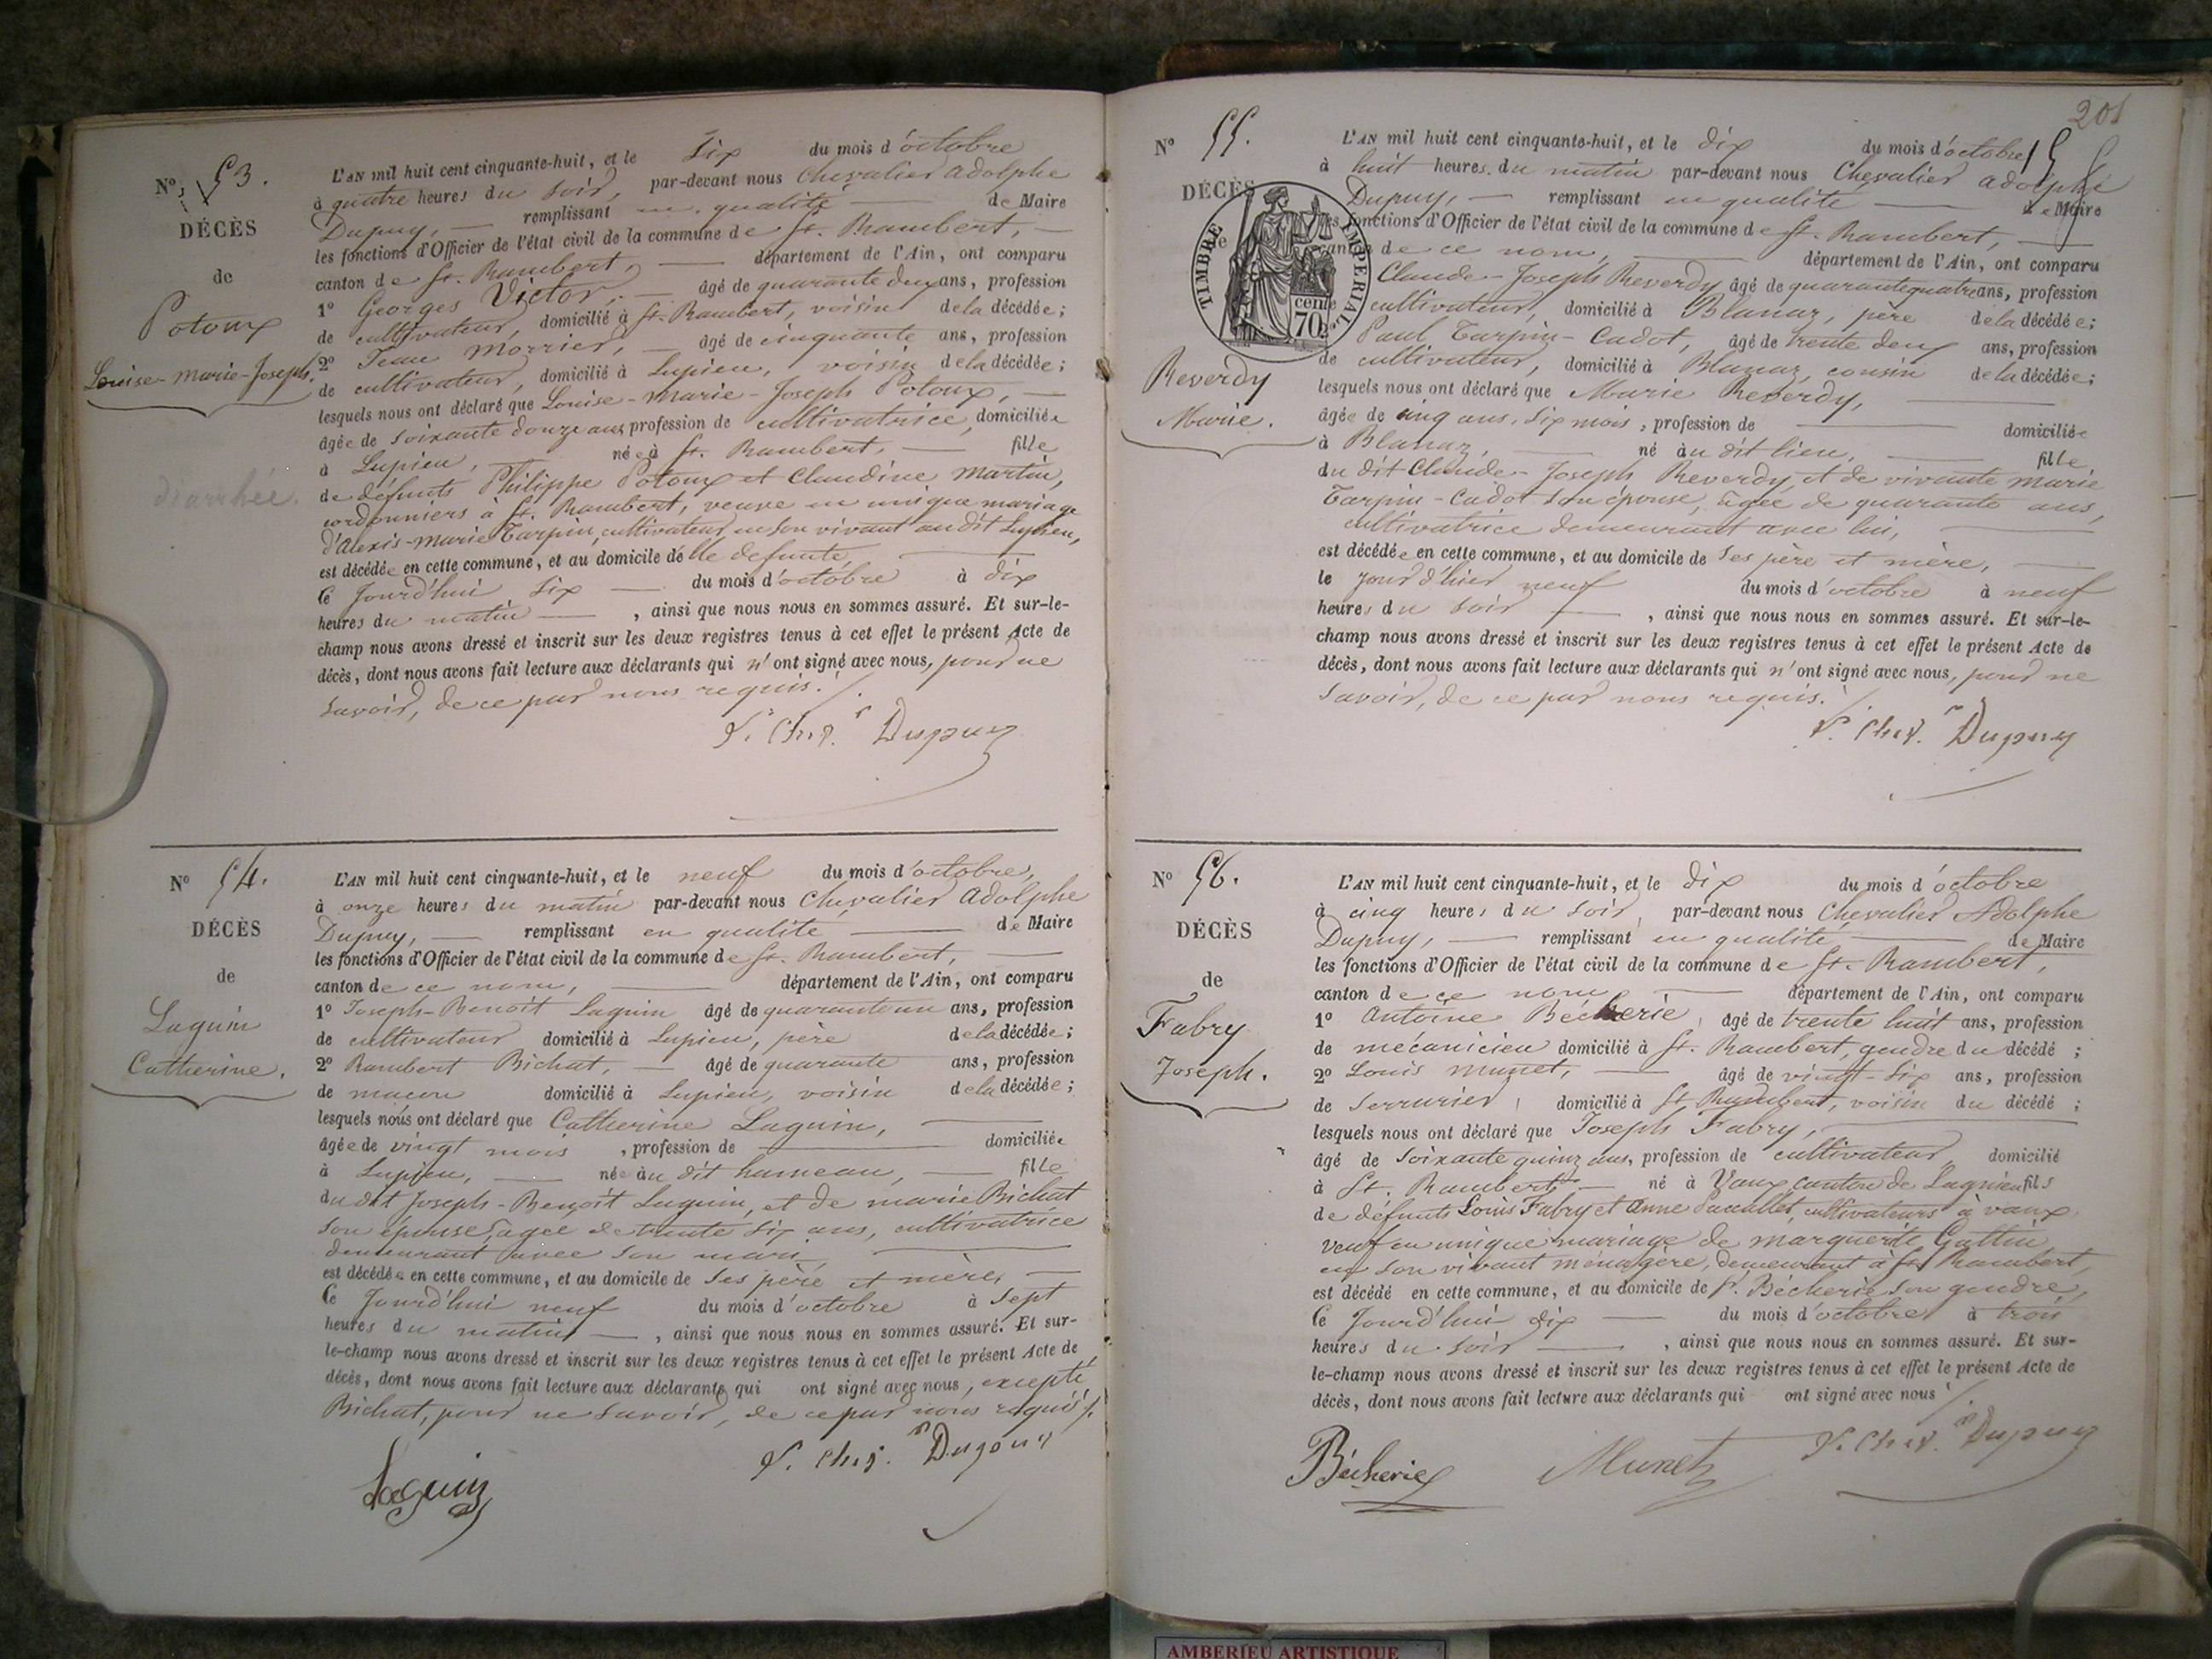 N° 53.
DÉCÈS
de
Potoux
Louise-Marie-Joseph.
diarrhée.
L'AN mil huit cent cinquante-huit, et le six du mois d'octobre
à quatre heures du soir, par-devant nous Chevalier Adolphe
Dupuy, remplissant en qualité de Maire
les fonctions d'Officier de l'état civil de la commune de St. Rambert,
canton de St. Rambert, département de l'Ain, ont comparu
1° Georges Victor, âgé de quarante deux ans, profession
de cultivateur, domicilié à St. Rambert, voisin de la décédée;
2° Jean Morrier, âgé de cinquante ans, profession
de cultivateur, domicilié à Lupieu, voisin de la décédée;
lesquels nous ont déclaré que Louise-Marie-Joseph Potoux,
âgée de soixante douze ans, profession de cultivatrice, domiciliée
à Lupieu, née à St. Rambert, fille
de défunts Philippe Potoux et Claudine Martin,
cordonniers à St. Rambert, veuve en unique mariage
d'Alexis-Marie Tarpin, cultivateur en son vivant au dit Lupieu,
est décédée en cette commune, et au domicile de lle defunte,
le jourd'hui six du mois d'octobre à dix
heures du matin, ainsi que nous nous en sommes assuré. Et sur-le-
champ nous avons dressé et inscrit sur les deux registres tenus à cet effet le présent Acte de
décès, dont nous avons fait lecture aux déclarants qui n'ont signé avec nous, pour ne
savoir, de ce par nous requis.
Dupuy
N° 54.
DÉCÈS
de
Laguin
Catherine.
L'AN mil huit cent cinquante-huit, et le neuf du mois d'octobre,
à onze heures du matin par-devant nous Chevalier Adolphe
Dupuy, remplissant en qualité de Maire
les fonctions d'Officier de l'état civil de la commune de St. Rambert,
canton de ce nom, département de l'Ain, ont comparu
1° Joseph-Benoit Laguin âgé de quarante un ans, profession
de cultivateur domicilié à Lupieu, père de la décédée;
2° Rambert Bichat, âgé de quarante ans, profession
de maçon domicilié à Lupieu, voisin de la décédée;
lesquels nous ont déclaré que Catherine Laguin,
âgée de vingt mois, profession de domiciliée
à Lupieu, née au dit hameau, fille
du dit Joseph-Benoît Laguin, et de marie Bichat
son épouse, agée de trente six ans, cultivatrice
demeurant avec son mari
est décédée en cette commune, et au domicile de ses père et mère,
le jourd'hui neuf du mois d'octobre à sept
heures du matin, ainsi que nous nous en sommes assuré. Et sur-
le-champ nous avons dressé et inscrit sur les deux registres tenus à cet effet le présent Acte de
décès, dont nous avons fait lecture aux déclarants qui ont signé avec nous, excepté
Bichat, pour ne savoir, de ce par nous requis.
Laguin Dupuy
201
N° 55.
DÉCÈS
TIMBRE IMPERIAL
70 cent.
Reverdy
Marie.
L'AN mil huit cent cinquante-huit, et le dix du mois d'octobre
à huit heures du matin par-devant nous Chevalier Adolphe
Dupuy, remplissant en qualité de Maire
les fonctions d'Officier de l'état civil de la commune de St. Rambert,
canton de ce nom, département de l'Ain, ont comparu
Claude-Joseph Reverdy âgé de quarante quatre ans, profession
cultivateur, domicilié à Blanaz, père de la décédée;
Paul Tarpin-Cadot, âgé de trente deux ans, profession
de cultivateur, domicilié à Blanaz, cousin de la décédée;
lesquels nous ont déclaré que Marie Reverdy,
âgée de cinq ans, six mois, profession de domiciliée
à Blanaz, né au dit lieu, fille
du dit Claude-Joseph Reverdy, et de vivante Marie
Tarpin-Cadot son épouse, agée de quarante ans,
cultivatrice demeurant avec lui,
est décédée en cette commune, et au domicile de ses père et mère,
le jour d'hier neuf du mois d'octobre à neuf
heures du soir, ainsi que nous nous en sommes assuré. Et sur-le-
champ nous avons dressé et inscrit sur les deux registres tenus à cet effet le présent Acte de
décès, dont nous avons fait lecture aux déclarants qui n'ont signé avec nous, pour ne
savoir, de ce par nous requis.
Dupuy
N° 56.
DÉCÈS
de
Fabry
Joseph.
L'AN mil huit cent cinquante-huit, et le dix du mois d'octobre
à cinq heures du soir, par-devant nous Chevalier Adolphe
Dupuy, remplissant en qualité de Maire
les fonctions d'Officier de l'état civil de la commune de St. Rambert,
canton de ce nom, département de l'Ain, ont comparu
1° Antoine Bécherie, âgé de trente huit ans, profession
de mécanicien domicilié à St. Rambert, gendre du décédé;
2° Louis Munet, âgé de vingt-six ans, profession
de serrurier, domicilié à St Rambert, voisin du décédé;
lesquels nous ont déclaré que Joseph Fabry,
âgé de soixante quinz ans, profession de cultivateur, domicilié
à St. Rambert, né à Vaux canton de Lagnieu fils
de défunts Louis Fabry et Anne cultivateurs à vaux,
veuf en unique mariage de marguerite Gattin
en son vivant ménagère, demeurant à St Rambert,
est décédé en cette commune, et au domicile de Sr. Bécherie son gendre,
le jourd'hui dix du mois d'octobre à trois
heures du soir, ainsi que nous nous en sommes assuré. Et sur-
le-champ nous avons dressé et inscrit sur les deux registres tenus à cet effet le présent Acte de
décès, dont nous avons fait lecture aux déclarants qui ont signé avec nous
Bécherie Munet Dupuy
AMBERIEU ARTISTIQUE